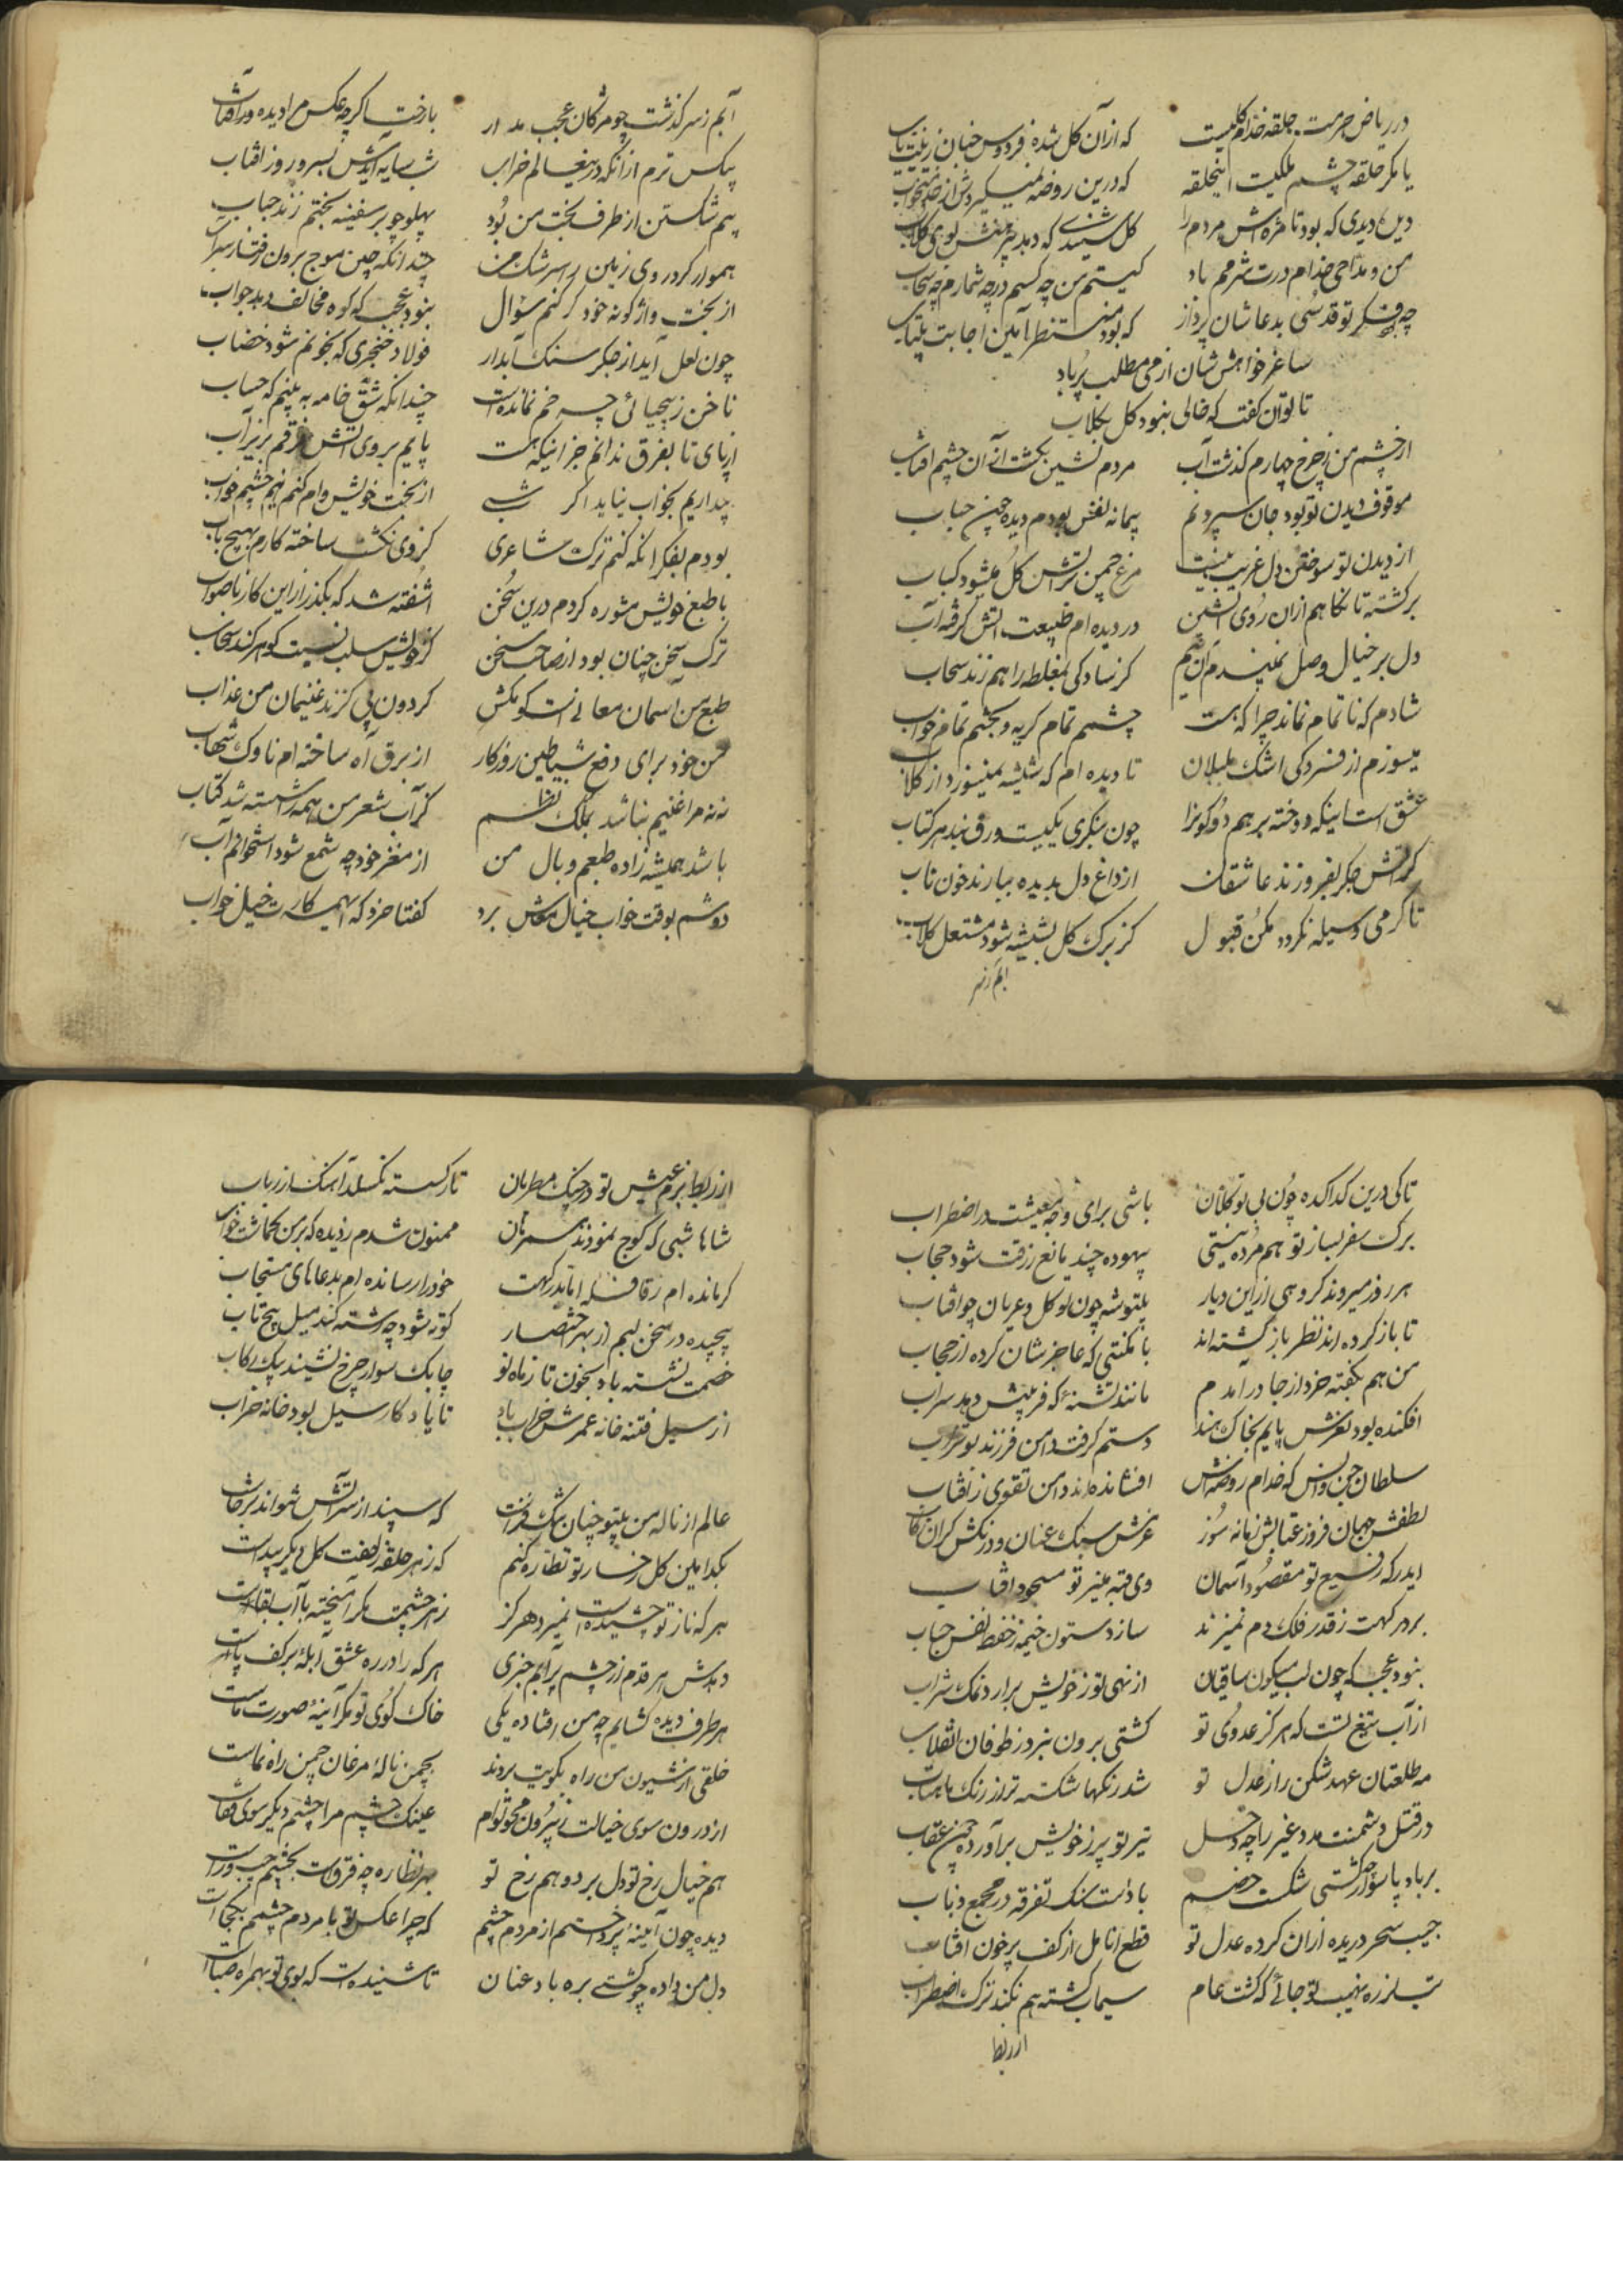 در ریاض حرمت حلقه خدام کلیست که ازان کل شده فردوس چنان زینت یاب
یا مکر حلقه چشم ملکیت اینحلقه که درین روضه نمیکیردش از
دین دیدی که بود تا مژه اش مردم را کل سپیدی که دمد بر بوی کلاب
من و مداحی خدام درت شرمم باد کیستم من چه کسم در چه شمارم چه سحاب
چه و فکر تو قدسی بدعا شان پرداز که بود منتظر آمین اجابت بیتاب
ساغر خواهش شان از می مطلب پر باد
تا توان کفت که خالی نبود کل بکلاب
از خشم من ز چرخ چهارم کذشت آب مردم نشین بکشت ازان چشم آفتاب
موقوف دیدن تو بود جان سپردنم پیمانه نفس بودم دیده چون حباب
از دیدن تو سوختن دل غریب نیست مرغ چمن بر آتش کل میشود کباب
برکشته تا نکاهم ازان روی آتشین در دیده ام طبیعت آتش کرفته آب
دل بر خیال وصل کر سادکی بمغلطه راهم زند سحاب
شادم که ناتمام نماند چرا که هست چشمم تمام کریه و بختم تمام خواب
میسوزم از فسردکی اشک بلبلان تا دیده ام که شیشه نمیسوزد از کلاب
عشق است اینکه دوخته بر هم دو کون را چون بنکری یکیست ورق بند هر کتاب
کر آتش جکر بفروزند عاشقان از داغ دل بدیده ببارند خون ناب
تا کرمی وسیله نکردد مکن قبول کز برک کل بشیشه شود مشتعل کلاب
ابم ز سر
آبم ز سر کذشت چو مژکان عجب مدار با رخت اکر چه عکس مرا دیده در آفتاب
بیکس ترم ازانکه درین عالم خراب شب سایه آیدش بسر و روز آفتاب
بیم شکستن از طرف بخت من بود پهلو چو بر سفینه بختم زند حباب
هموار کرد روی زمین را سرشک من چندانکه چین موج برون رفت از سراب
از بخت واژکونه خود کر کنم سوال نبود عجب که کوه مخالف دهد جواب
چون لعل آید از جکر سنک آبدار فولاد خنجری که بخونم شود خضاب
ناخن ز بیحیائی چه خم نمانده است چندانکه شق خامه به بینم که حساب
از پای تا بفرق ندانم جز اینکه هست پایم بروی آتش و فرقم بزیر آب
بیداریم بخواب نیاید اکر شبی از بخت خویش وام کنم بهر چشم خواب
بودم بفکر انکه کنم ترک شاعری کز وی نکشت ساخته کارم بهیچ باب
با طبع خویش مشوره کردم درین سخن آشفته شد که بکذر از این کار ناصواب
ترک سخن چنان بود از صاحب سخن کز خویش سلب نسبت کوهر کند سحاب
طبع من آسمان معانی است کو مکش کردون پی کزند غنیمان من عذاب
من خود برای دفع شیاطین روزکار از برق آه ساخته ام ناوک شهاب
نه نه مرا غنیم نباشد بملک نظم کز آب شعر من همه را شسته شد کتاب
باشد همیشه زاده طبعم وبال من از مغز خود چه شمع شود استخوانم آب
دوشم بوقت خواب خیال معاش برد کفتا خرد که اینهمه کارست خیل خواب
تا کی درین کداکده چون بی توکلان باشی برای وجه معیشت در اضطراب
برک سفر بساز تو هم مرده نیستی بیهوده چند مانع رزقت شود حجاب
هر روز میروند کروهی ازاین دیار بیتوشه چون توکل و عریان چو آفتاب
تا باز کرده اند نظر باز کشته اند با مکنتی که عاجزشان کرده از حجاب
من هم بکفته خرد از جا در آمدم مانند تشنه که فریبش دهد سراب
افکنده بود لغزش پایم بخاک هند دستم کرفت دامن فرزند بوتراب
سلطان جن و انس که خدام روضه اش افشانده اند دامن تقوی ز آفتاب
لطفش جهان فروز عتابش زمانه سوز عزمش سبک عنان و درنکش کران رکاب
ای درکه رفیع تو مقصود آسمان وی قبه منیر تو مسجود آفتاب
بر درکهت ز قدر فلک دم نمیزند سازد ستون خیمه ز حفظ نفس حباب
نبود عجب که چون لب میکون ساقیان از نهی تو ز خویش برارد نمک شراب
از آب تیغ تست که هرکز عدوی تو کشتی برون نبرد ز طوفان انقلاب
مه طلعتان عهد شکن را ز عدل تو شد رنکها شکسته تر از رنک ماهتاب
در قتل دشمنت مدد غیر را چه دخل تیر تو پر ز خویش برآورده چون عقاب
بر باد پا سوار چو کشتی شکست خصم با دانست سنک تفرقه در مجمع ذباب
جیب سحر دریده ازان کرده عدل تو قطع انامل از کف پر خون آفتاب
تب لرزه نهیب تو جائی که کشت عام سیماب کشته هم نکند ترک اضطراب
از ربط
از ربط بزم عیش تو در چنک مطربان تار کسسته نکسلد آهنک از رباب
شاها شبی که کوچ نمودند همرهان ممنون شدم ز دیده که بر من کماشت خواب
کر مانده ام ز قافله اما بدرکهت خود را رسانده ام بدعاهای مستجاب
پیچیده در سخن لبم از بهر اختصار کوته شود چه رشته کند میل پیچ و تاب
خصمت نشسته باد بخون تا ز ماه نو چابک سوار چرخ نشیند بیک رکاب
از سیل فتنه خانه عمرش خراب باد تا یاد کار سیل بود خانه خراب
عالم از ناله من بیتو چنان تنک فضاست که سپند از سر آتش نتواند برخاست
بکدامین کل رخسار تو نظاره کنم که ز هر حلقه زلفت کل دیکر پیداست
هر که ناز تو چشیده است نمیرد هرکز زهر چشمت مکر آمیخته با آب بقاست
دمدش هر قدم از چشم پرآبم جزی هر که را در ره عشق آبله بر کف پاست
هر طرف دیده کشایم چه من افتاده یکی خاک کوی تو مکر آئینه صورت ماست
خلقی از شیون من راه بکویت بردند بچمن ناله مرغان چمن راه نماست
از درون سوی خیالت ز برون محو توام عینک چشم مرا چشم دیکر سوی قفاست
هم خیال رخ تو دل برد و هم رخ تو بهر نظاره چه فرقست بچشم چپ و راست
دیده چون آینه پرداختم از مردم چشم که چرا عکس تو با مردم چشمم یکجاست
دل من داده چو کشتی بره باد عنان تا شنیده است که بوی تو بهمراه صباست